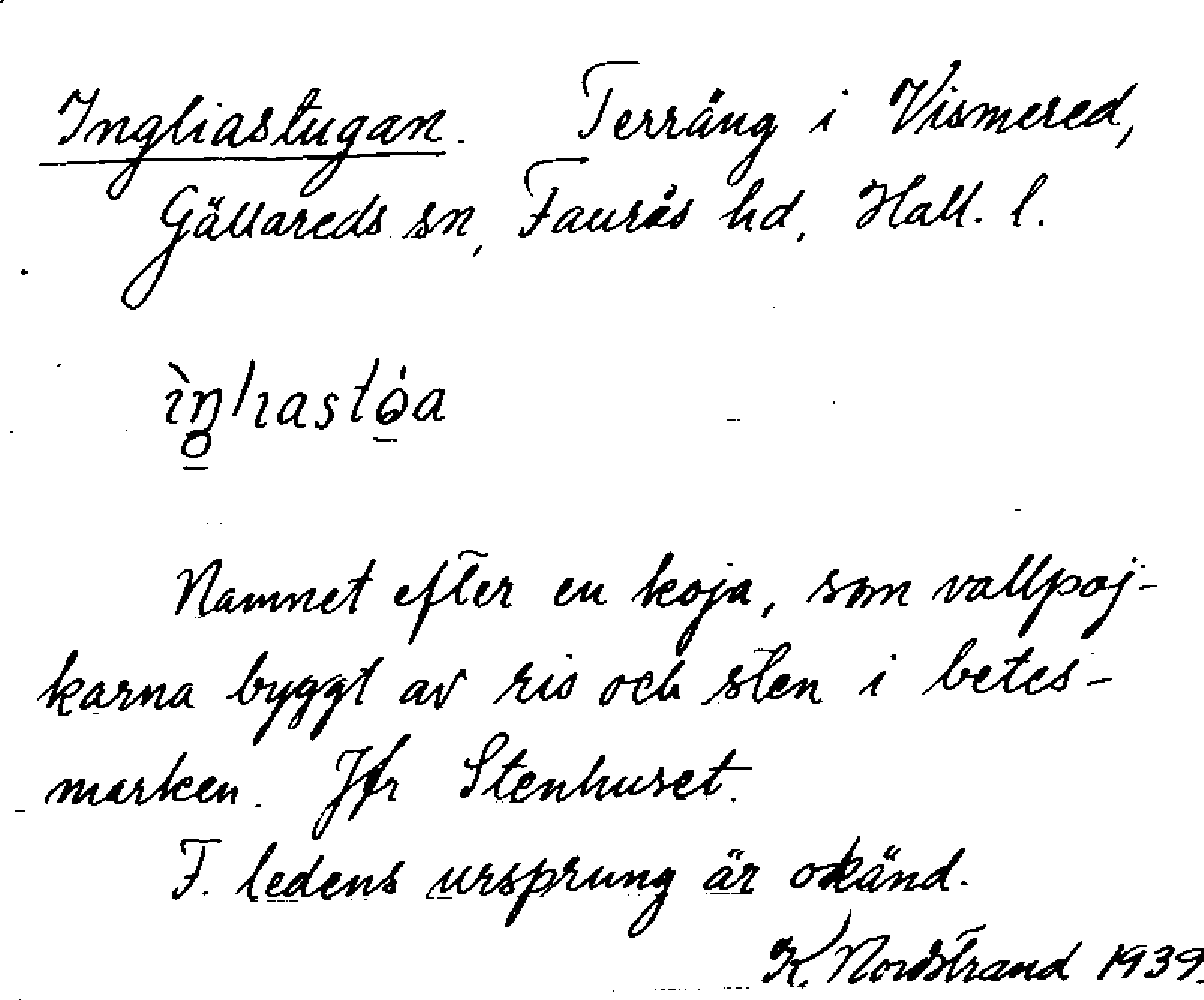 Ingliastugan. Terräng i Vismered,
Gällareds sn, Faurås hd, Hall. l.
Namnet efter en koja, som vallpoj-
karna byggt av ris och sten i betes-
marken. Jfr Stenhuset.
F. ledens ursprung är okänd.
K. Nordstrand 1939.